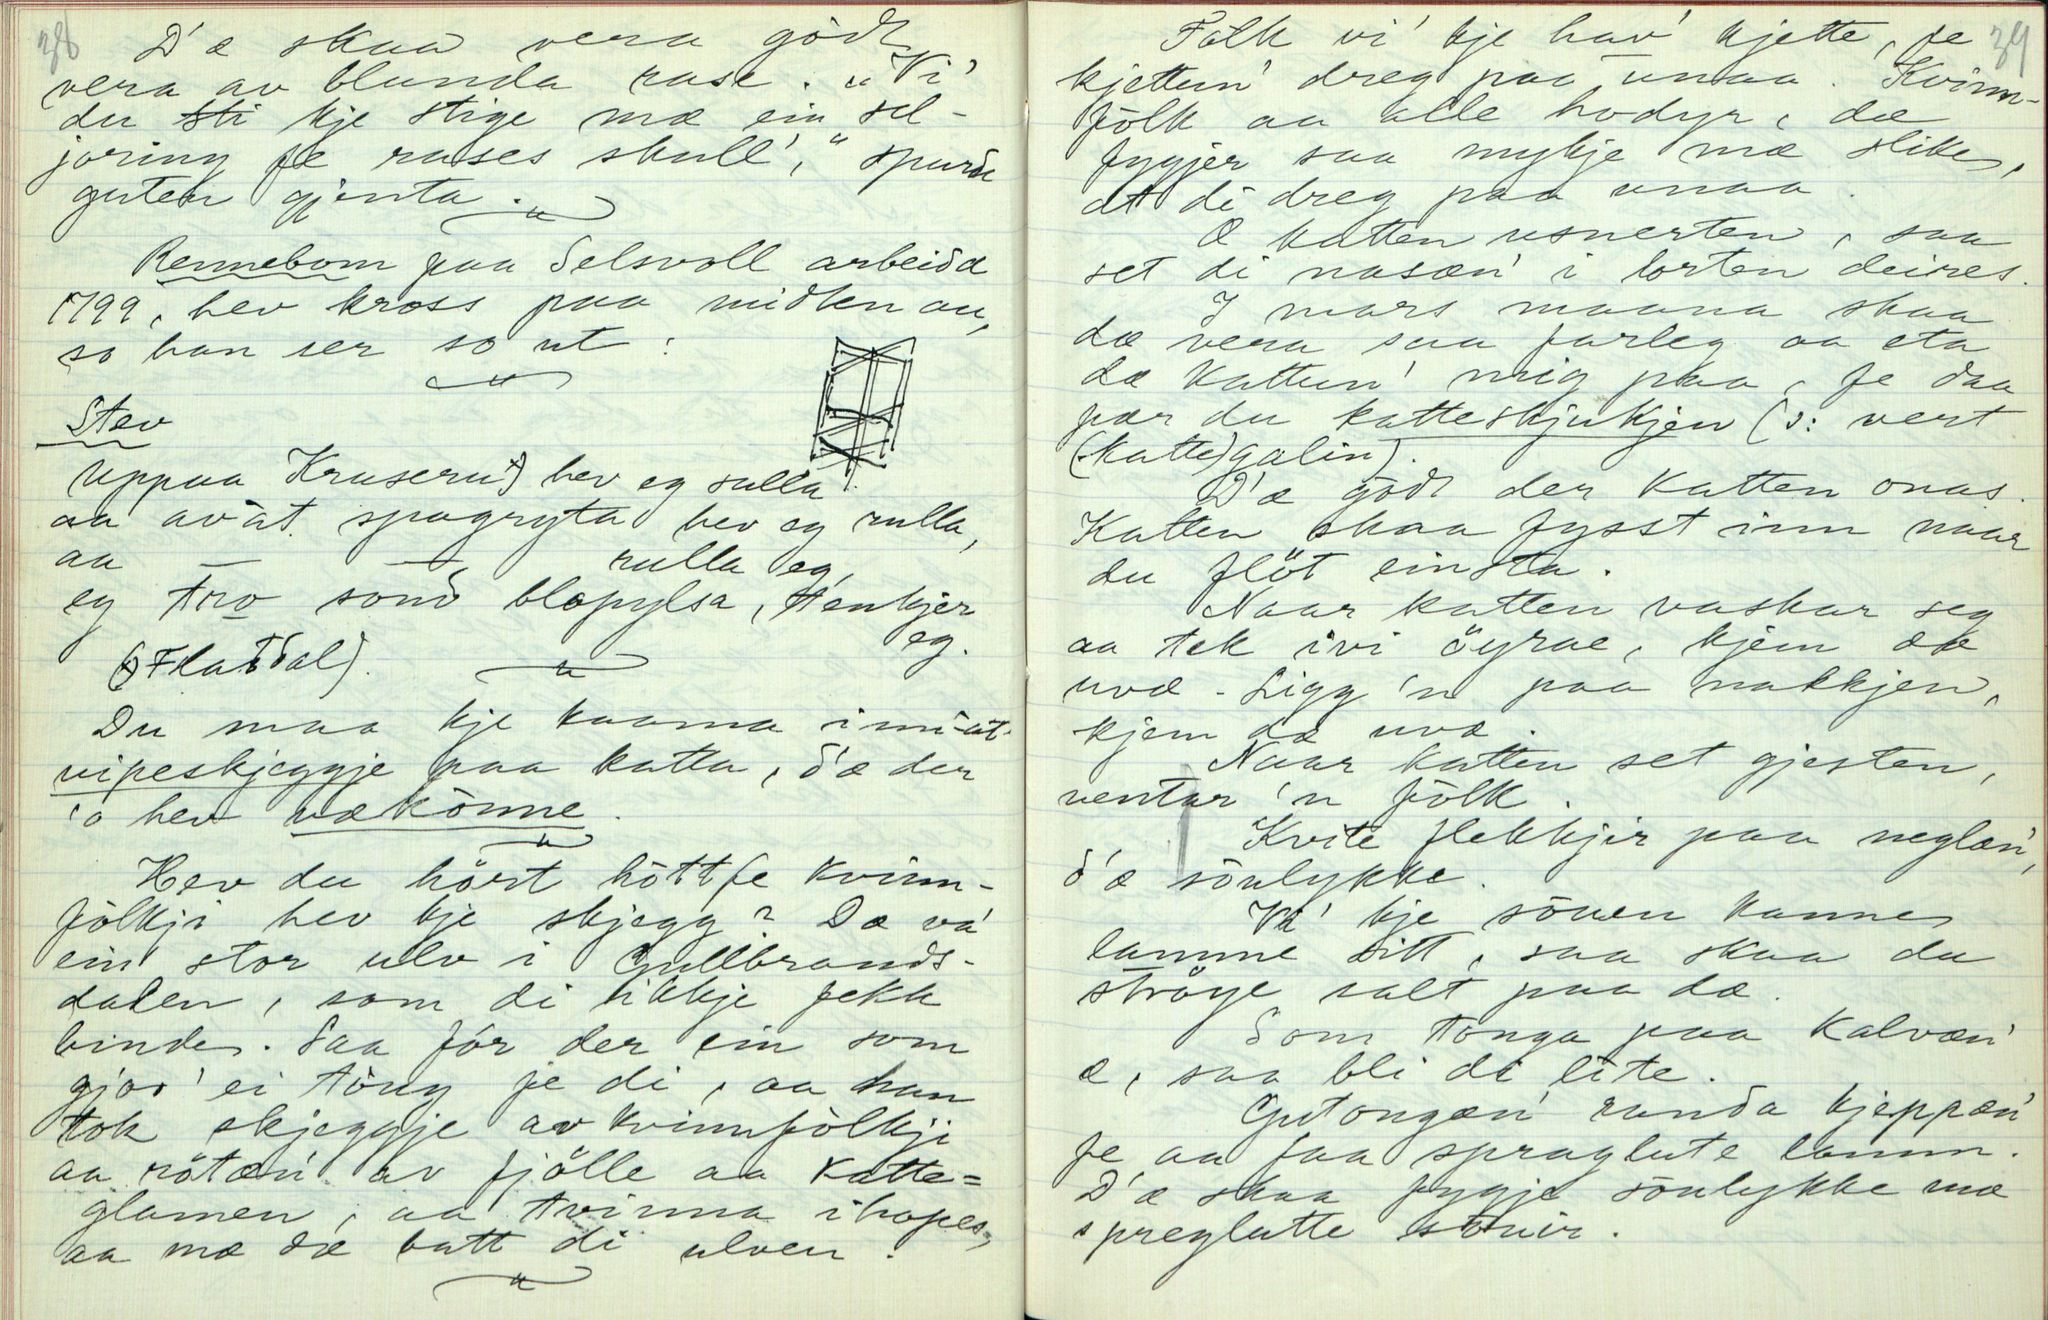 38
D'æ skaa vera godt
vera av blanda rase. "Vi'
du sti kje stige mæ ein sel-
joring fe rases skull'," spurde
guten gjenta.
Rennebom paa Selsvoll arbeidd
1799, hev kross paa midten au,
so han ser so ut:
Stev
Uppaa Kruseru x) hev eg sulla
aa avat spagryta hev eg rulla,
aa — — rulla eg,
eg tro som blopylsa, tenkjer
eg.
(x) Flatdal).
Du maa kje kaama inni at-
vipeskjeggje paa katta, d'æ der
'o hev vækönne.
Hev du hört hött fe kvinn-
fölkji hev kje skjegg? Dæ va'
ein stor ulv i Gullbrands-
dalen, som di ikkje fekk
binde. Saa för der ein som
gjor' ei töug fe di, aa han
tok skjeggje av kvinnfölkji
aa rötæn' av fjölle aa katte=
glamen, aa tvinna ihopes,
aa mæ dæ batt di ulven.
39
Fölk vi' kje hav' kjette, fe
kjettun' dreg paa unaa. Kvinn-
fölk aa alle hodyr, dæ
fygjer saa mykje mæ slike,
at di dreg paa unaa.
Æ katten usnerten, saa
set di nasæn' i lorten deires.
I mars maana skaa
dæ vera saa farleg aa eta
dæ kattun' mig paa, fe daa
fær du katteskjukjen (ɔ: vert
(katte)galin).
D'æ godt der katten onas.
Katten skaa fysst inn naar
du flöt einsta.
Naar katten vaskar seg
aa tek ivi öyrae, kjem dæ
uvæ. Ligg 'n paa nakkjen,
kjem dæ uvæ.
Naar katten set gjesten,
ventar 'n fölk.
Kvite flekkjir paa neglæn',
d'æ söulykke.
Vi' kje söuen kanne
lamme sitt, saa skaa du
ströye salt paa dæ.
Som tonga paa kalvæn'
æ, saa bli di lite.
Gutongæn' randa kjeppæn'
fe aa faa spraglute lamm.
D'æ skaa fygje söulykke mæ
spreglutte söuir.